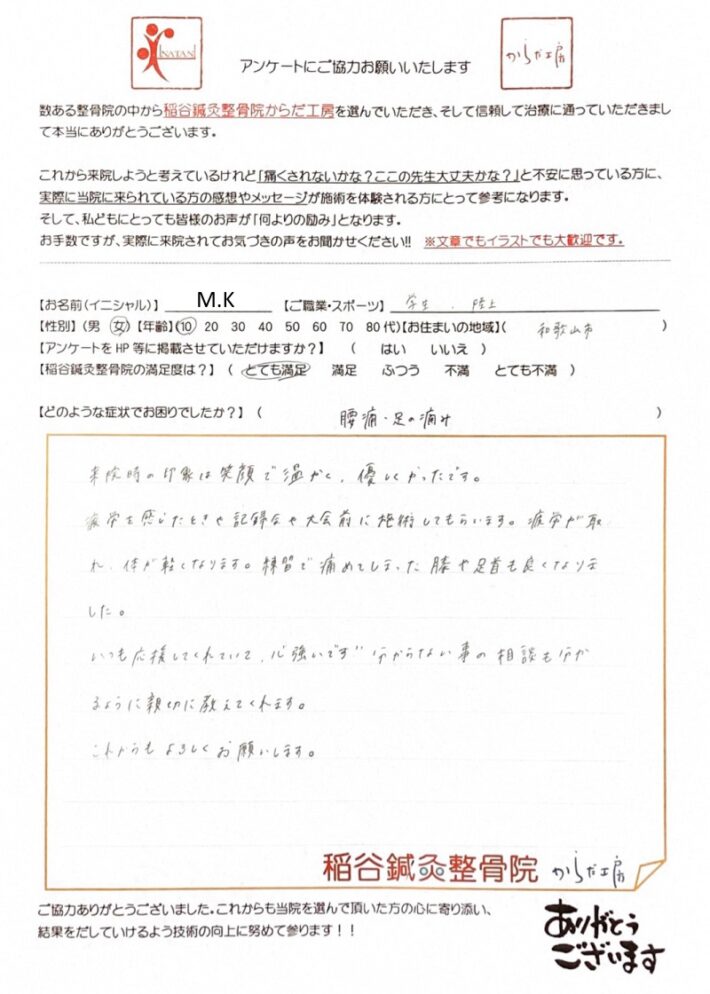 INATANI
アンケートにご協力お願いいたします
からだ工房
数ある整骨院の中から稲谷鍼灸整骨院からだ工房を選んでいただき、そして信頼して治療に通っていただきまし
て本当にありがとうございます。
これから来院しようと考えているけれど「痛くされないかな?ここの先生大丈夫かな?」と不安に思っている方に、
実際に当院に来られている方の感想やメッセージが施術を体験される方にとって参考になります。
そして、私どもにとっても皆様のお声が「何よりの励み」となります。
お手数ですが、実際に来院されてお気づきの声をお聞かせください!! ※文章でもイラストでも大歓迎です。
【お名前(イニシャル)】 M.K 【ご職業・スポーツ】 学生 . 陸上
【性別】(男 女)【年齢】(10 20 30 40 50 60 70 80代)【お住まいの地域】( 和歌山市 )
【アンケートをHP等に掲載させていただけますか?】 ( はい いいえ )
【稲谷鍼灸整骨院の満足度は?】 ( とても満足 満足 ふつう 不満 とても不満 )
【どのような症状でお困りでしたか?】 ( 腰痛・足の痛み )
来院時の印象は笑顔で温かく、優しかったです。
疲労を感じたときや記録会や大会前に施術してもらいます。疲労が取
れ、体が軽くなります。練習で痛めてしまった膝や足首も良くなりま
した。
いつも応援してくれていて、心強いです゛分からない事の相談も分か
るように親切に教えてくれます。
これからもよろしくお願いします。
稲谷鍼灸整骨院 からだ工房
ご協力ありがとうございました。これからも当院を選んで頂いた方の心に寄り添い、
結果をだしていけるよう技術の向上に努めて参ります!!
ありがとう
ございます